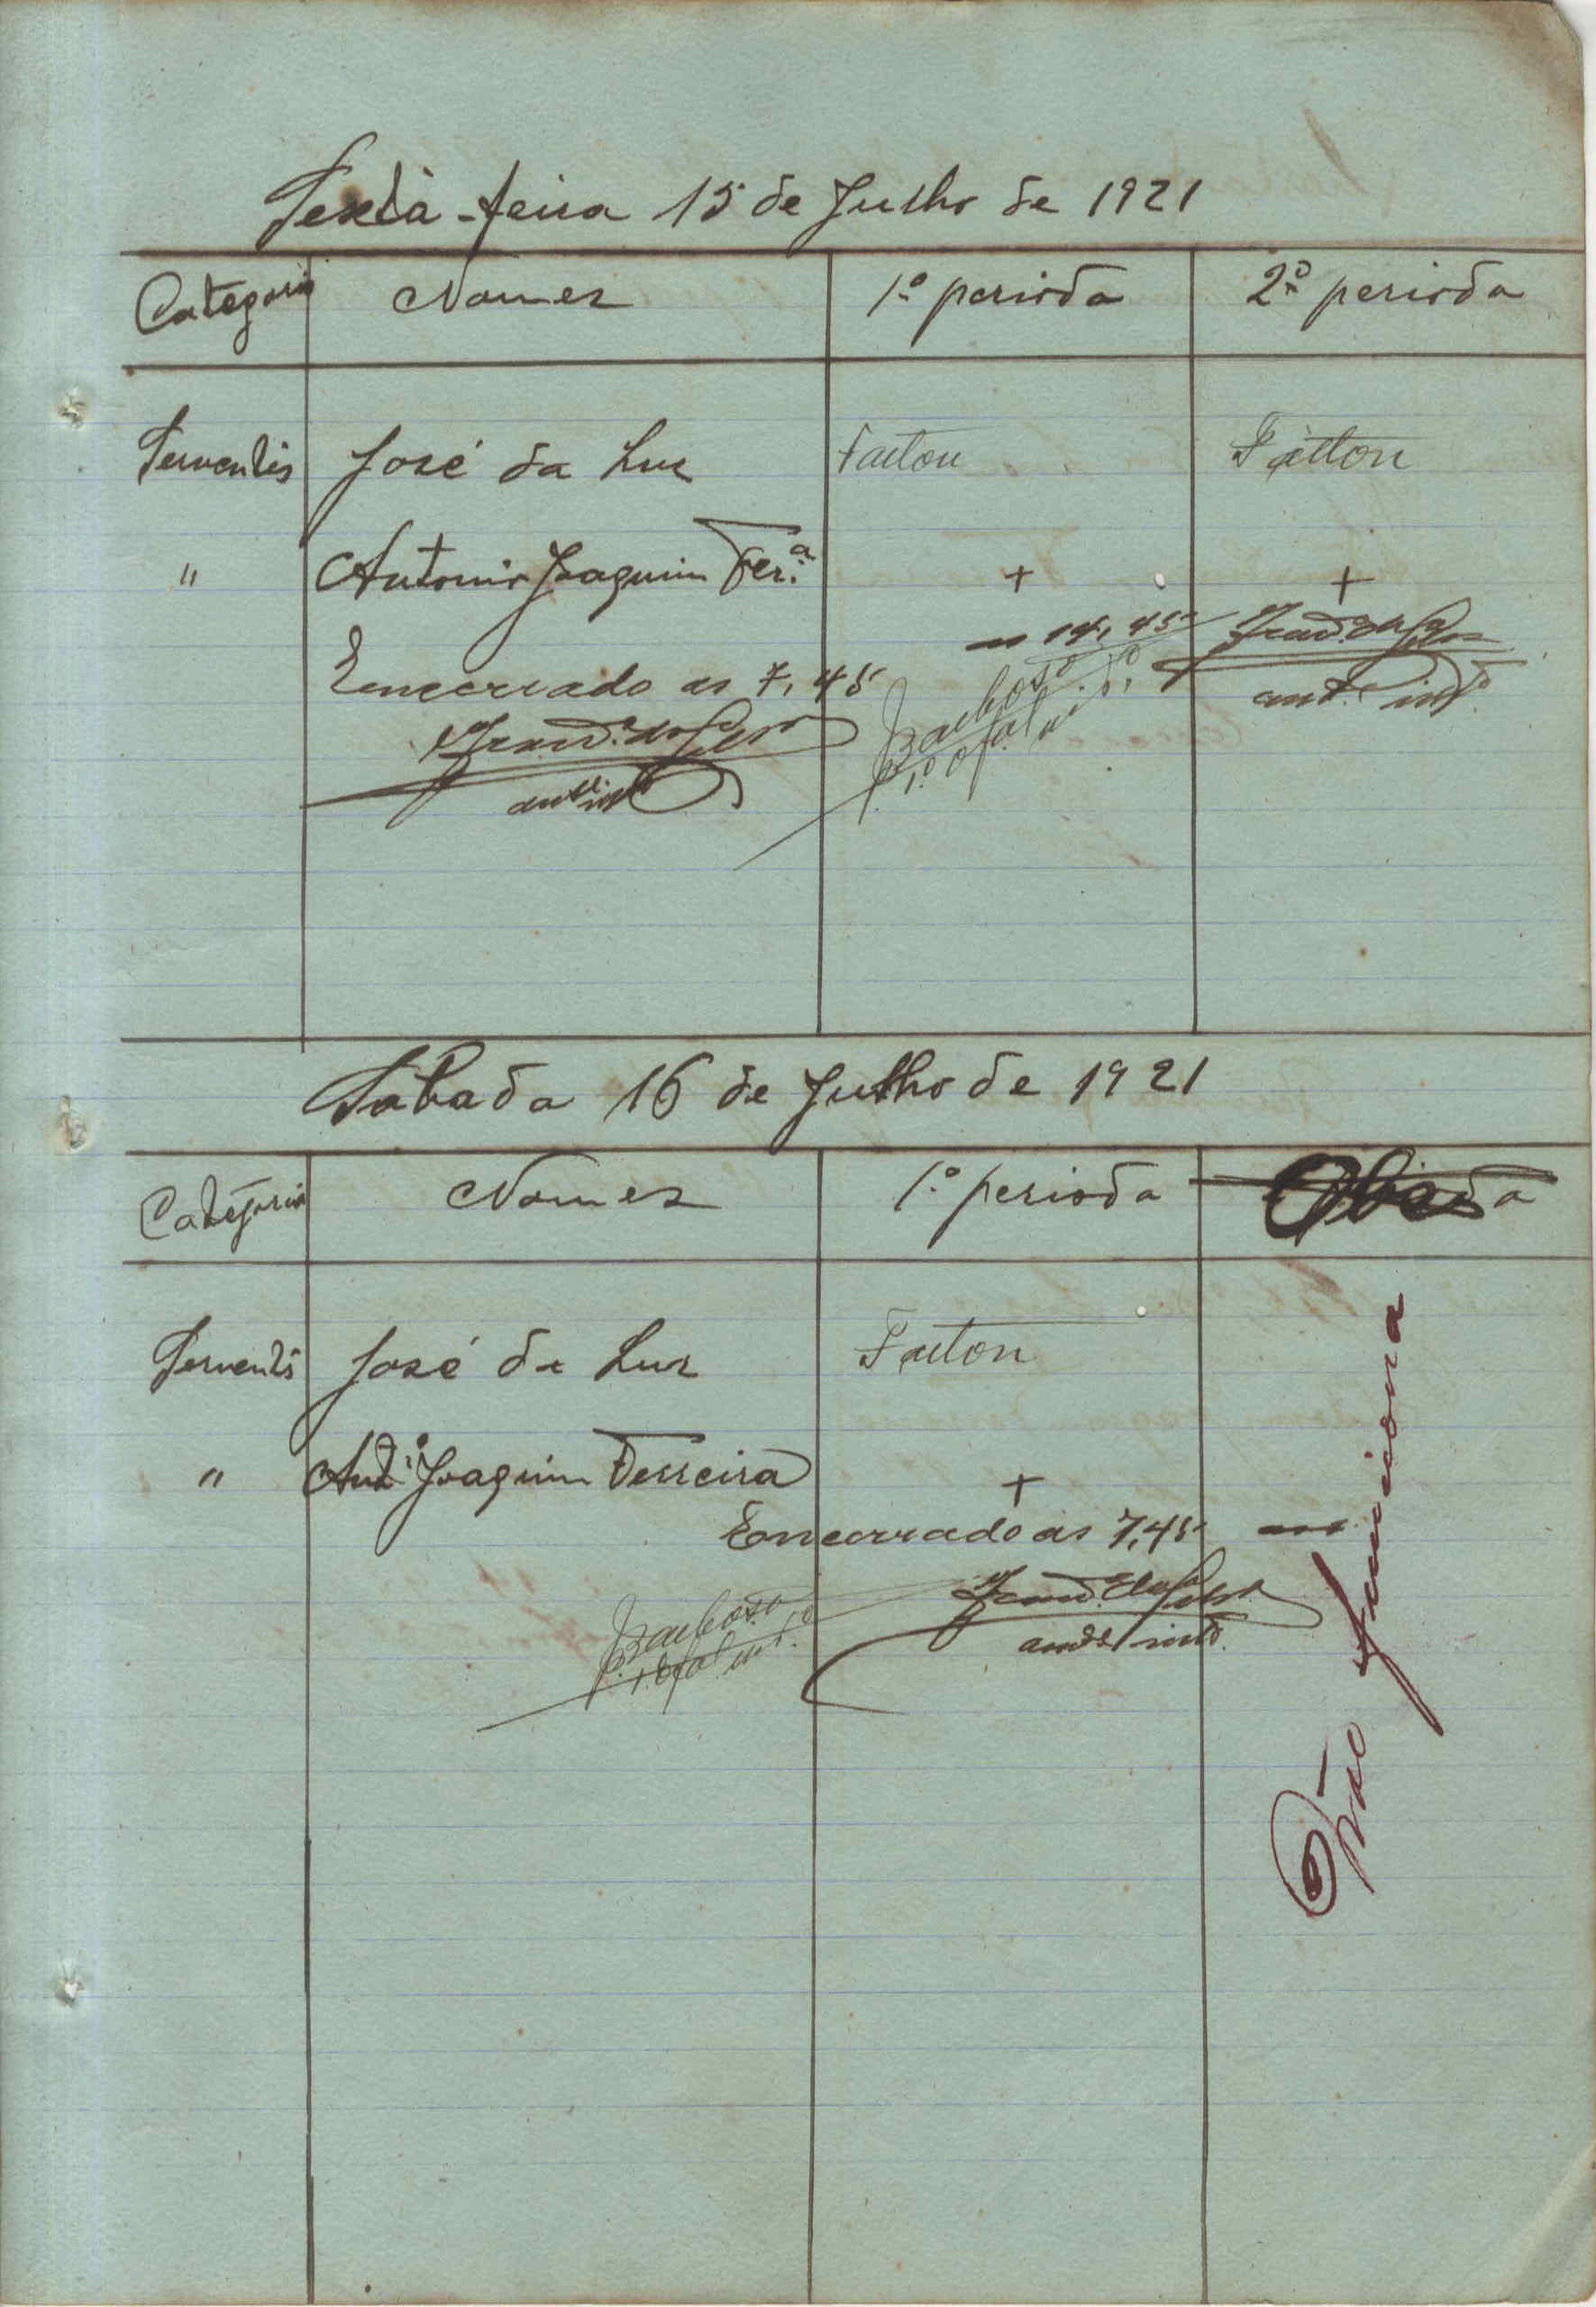 Sexta-feira 15 de Julho de 1921
Categoria Nomes 1º periodo 2º periodo
Serventes José da Luz Faltou Faltou
" Antonio Joaquim Fer.ª + +
Encerrado as 7,45 as 14,45
Barbosa
1º ofal intº
Sabado 16 de Julho de 1921
Categoria Nomes 1º periodo
Serventes José da Luz Faltou
" Antº Joaquim Ferreira +
Encerrado as 7,45
Barbosa
1º ofal intº
Não funciona